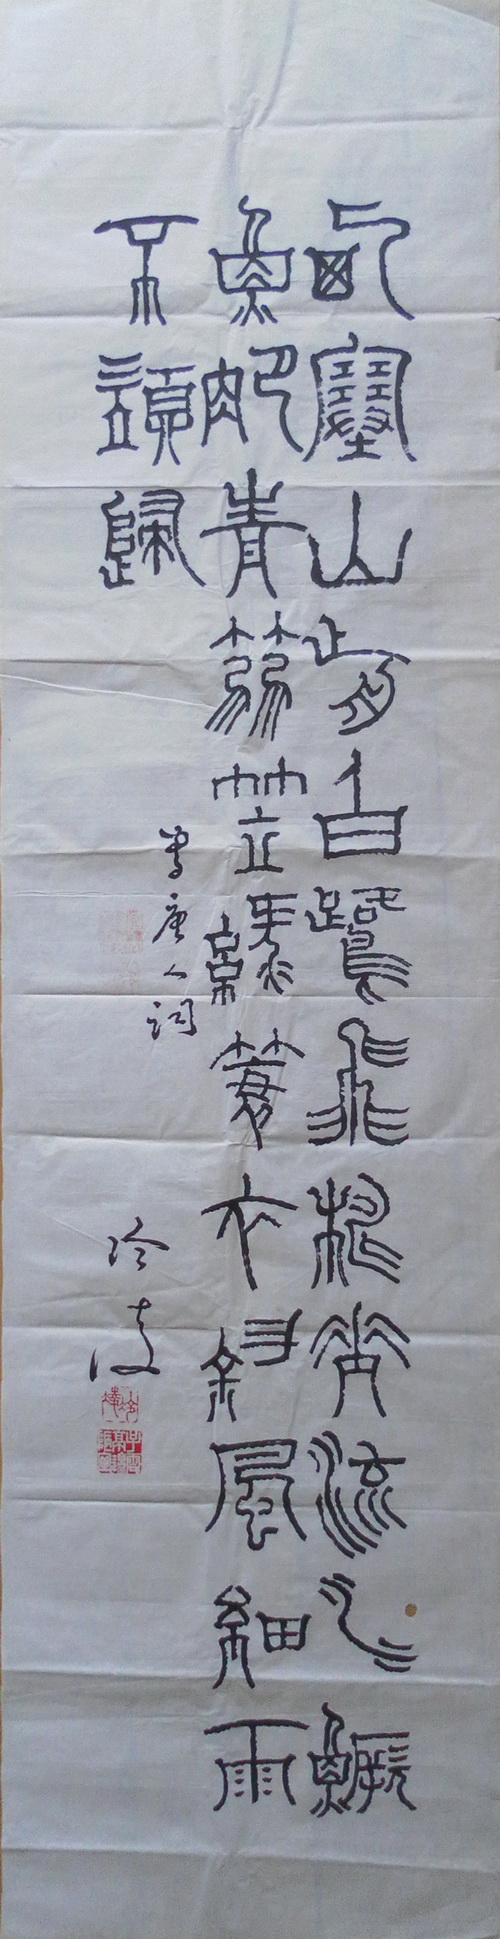 西塞山前白鷺飛桃花流水鱖
魚肥青箬笠綠蓑衣斜風細雨
不須歸
書唐人詞